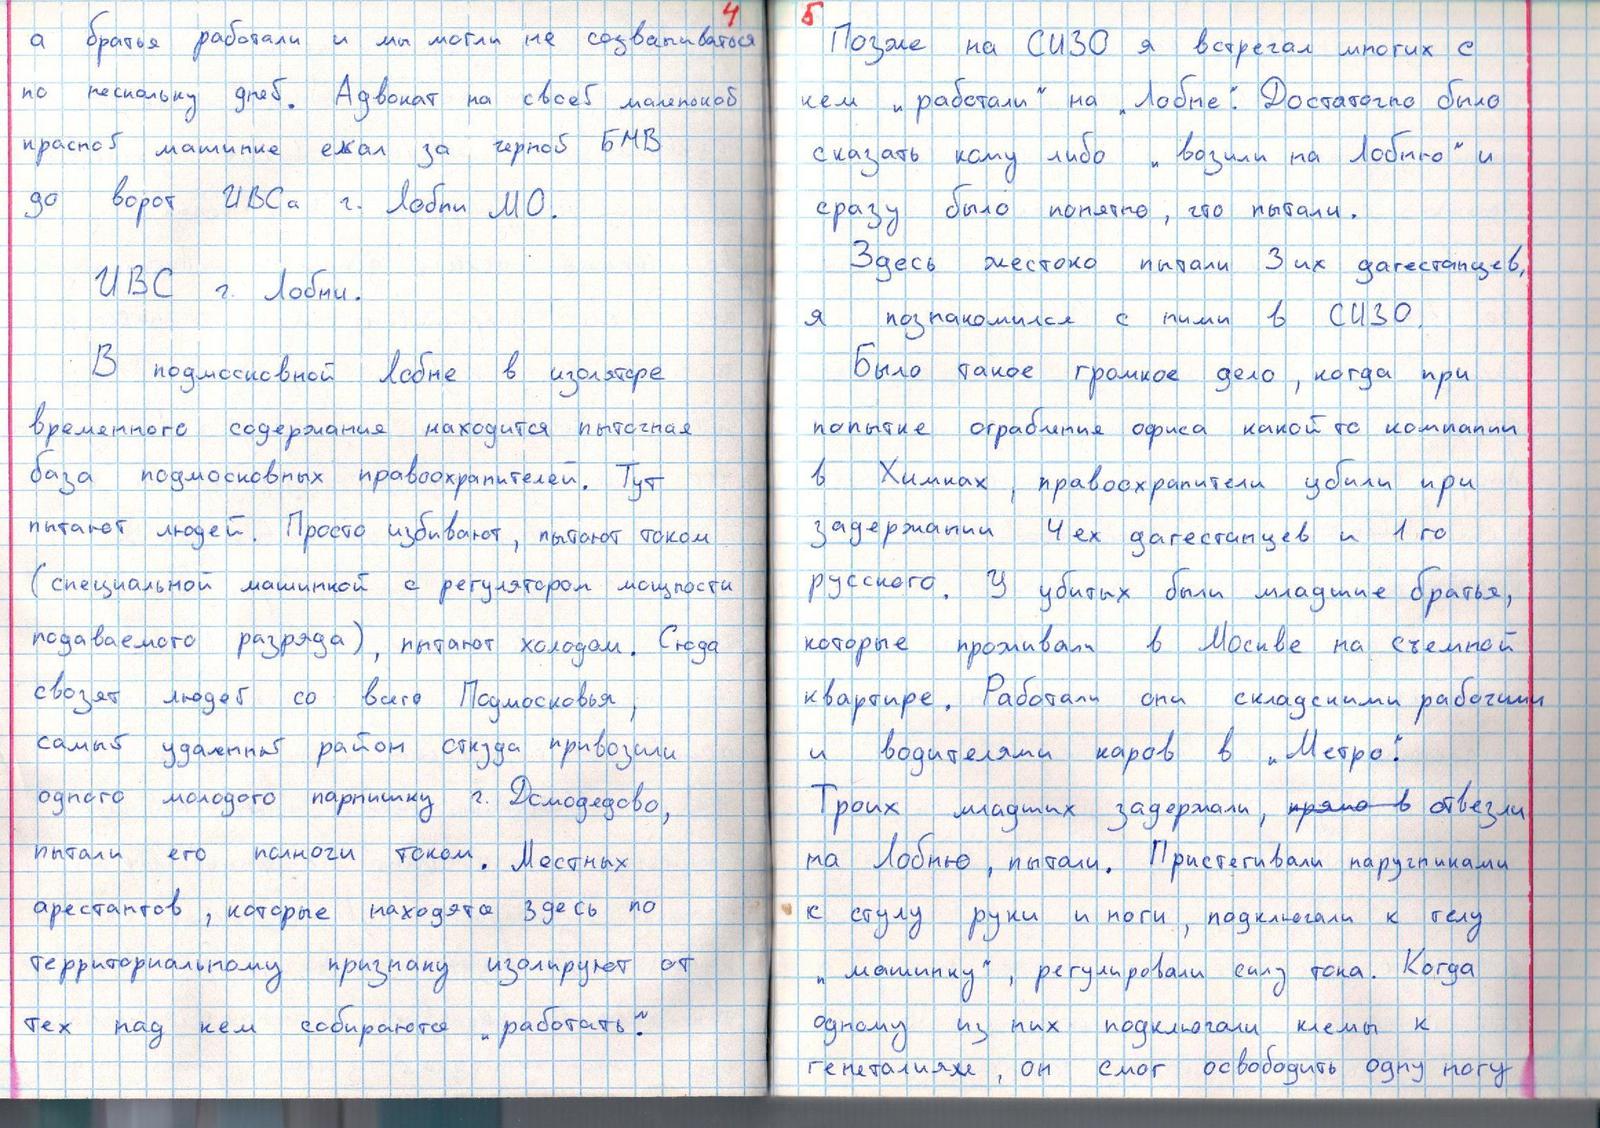 4
а братья работали и мы могли не созваниваться
по нескольку дней. Адвокат на своей маленькой
красной машинке ехал за черной БМВ
до ворот ИВСа г. Лобни МО.
ИВС г. Лобни.
В подмосковной Лобне в изоляторе
временного содержания находится пыточная
база подмосковных правоохранителей. Тут
пытают людей. Просто избивают, пытают током
(специальной машинкой с регулятором мощности
подаваемого разряда), пытают холодом. Сюда
свозят людей со всего Подмосковья,
самый удаленный район откуда привозили
одного молодого парнишку г. Домодедово,
пытали его полночи током. Местных
арестантов, которые находятся здесь по
территориальному признаку изолируют от
тех над кем собираются „работать".
5
Позже на СИЗО я встречал многих с
кем „работали" на „Лобне". Достаточно было
сказать кому либо „возили на Лобню" и
сразу было понятно, что пытали.
Здесь жестоко пытали 3их дагестанцев,
я познакомился с ними в СИЗО.
Было такое громкое дело, когда при
попытке ограбления офиса какой то компании
в Химках, правоохранители убили при
задержании 4ех дагестанцев и 1го
русского. У убитых были младшие братья,
которые проживали в Москве на съемной
квартире. Работали они складскими рабочими
и водителями каров в „Метро".
Троих младших задержали, прямо в отвезли
на Лобню, пытали. Пристегивали наручниками
к стулу руки и ноги, подключали к телу
„машинку", регулировали силу тока. Когда
одному из них подключали клемы к
генеталиям, он смог освободить одну ногу